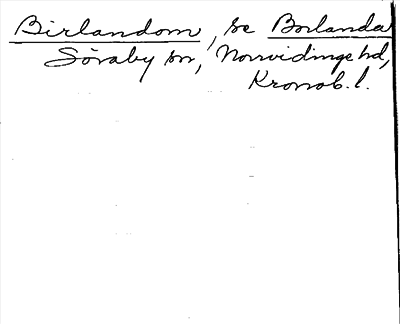 Birlandom, se Borlanda
Söraby sn, Norrvidinge hd,
Kronob. l.